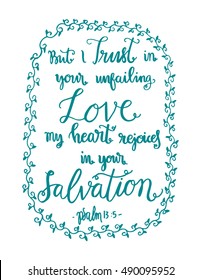 But I Trust in
your unfailing
Love
my heart rejoices
in your
Salvation
-psalm 13:5-
shutterstock
IMAGE ID: 490095952
www.shutterstock.com